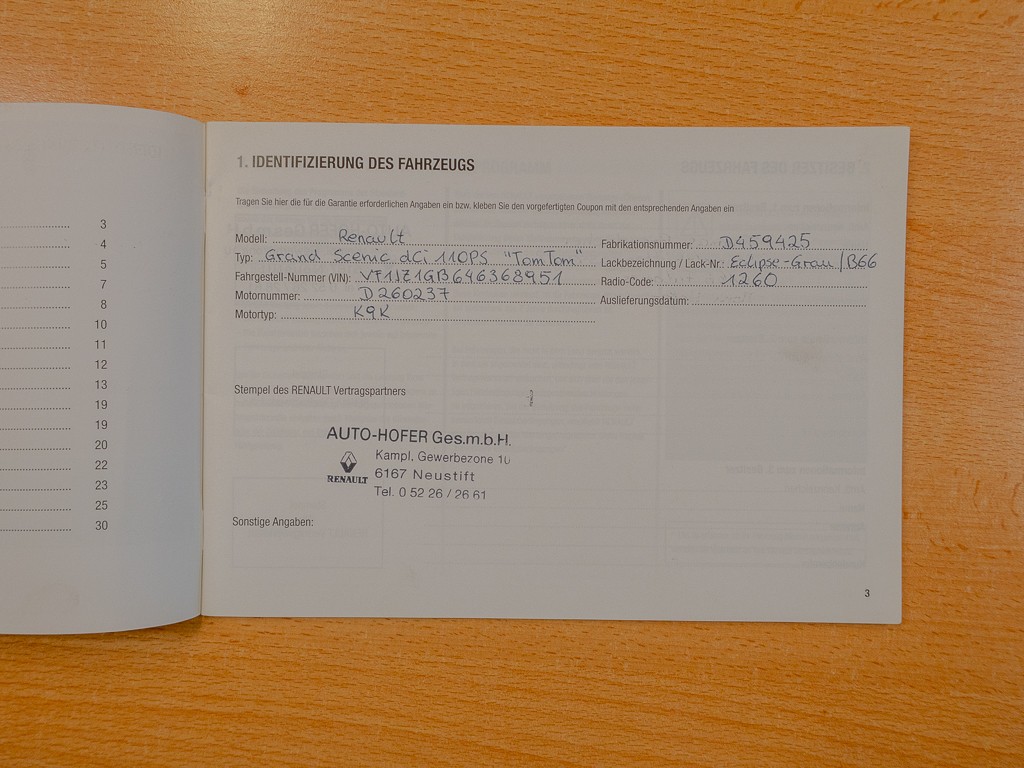 3
4
5
7
8
10
11
12
13
19
19
20
22
23
25
30
1. IDENTIFIZIERUNG DES FAHRZEUGS
Tragen Sie hier die für die Garantie erforderlichen Angaben ein bzw. kleben Sie den vorgefertigten Coupon mit den entsprechenden Angaben ein
Modell: Renault
Typ: Grand Scenic dCi 110PS "TomTom"
Fahrgestell-Nummer (VIN): VF1JZ1GB646368951
Motornummer: D260237
Motortyp: K9K
Fabrikationsnummer: D459425
Lackbezeichnung / Lack-Nr.: Eclipse-Grau/B66
Radio-Code: 1260
Auslieferungsdatum:
Stempel des RENAULT Vertragspartners
AUTO-HOFER Ges.m.b.H.
Kampl, Gewerbezone 10
6167 Neustift
Tel. 0 52 26 / 26 61
RENAULT
Sonstige Angaben:
3